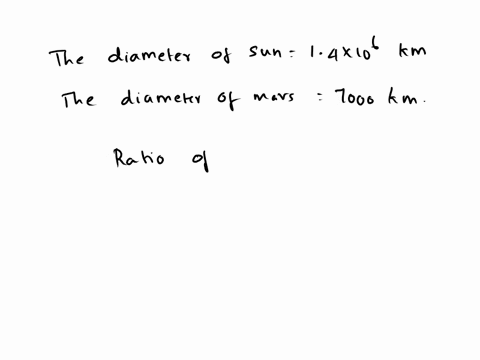 The diameter of sun = 1.4×10⁶ km
The diameter of mars = 7000 km.
Ratio of